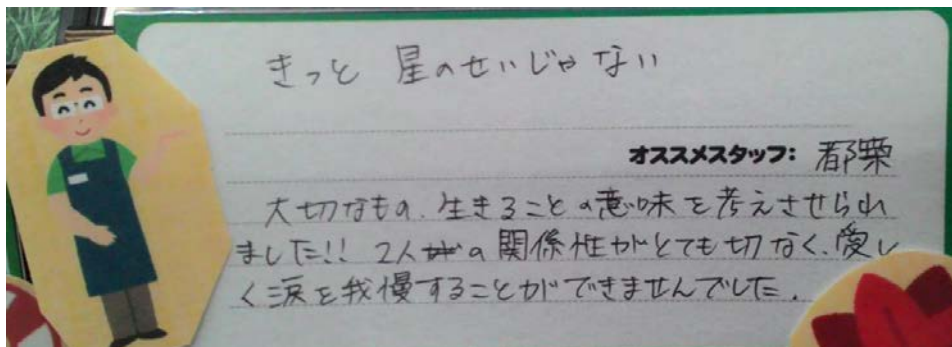 きっと 星のせいじゃない
オススメスタッフ: 都築
大切なもの、生きることの意味を考えさせられ
ました!! 2人の関係性がとても切なく、愛し
く涙を我慢することができませんでした。